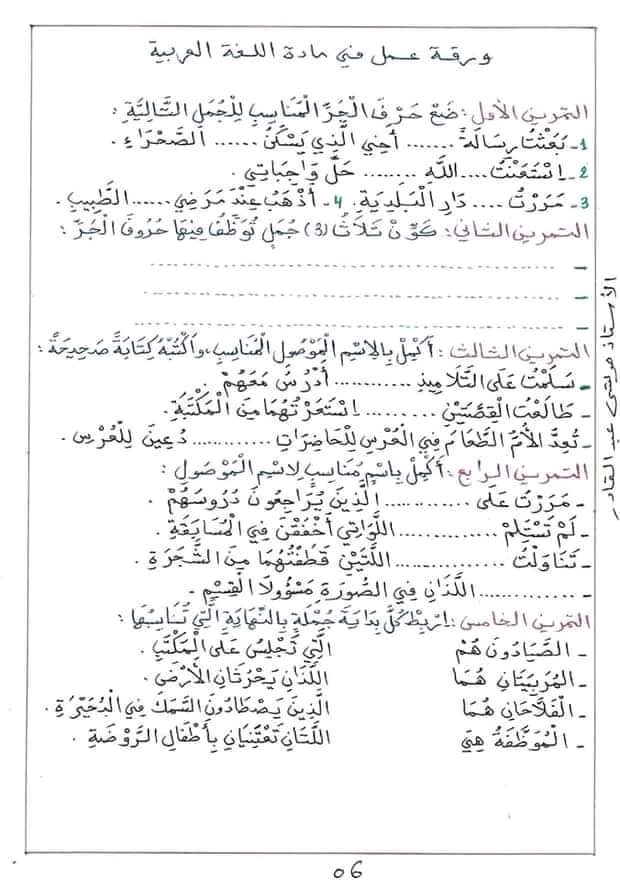 ورقة عمل في مادة اللغة العربية
التمرين الأول : ضَعْ حَرْفَ الْجَرِّ الْمُنَاسِبِ لِلْجُمَلِ التَّالِيَّةِ :
1- بَعَثْتُ رِسَالَةً ....... أَخِي الَّذِي يَسْكُنُ ...... الصَّحْرَاءِ .
2- اِسْتَعَنْتُ .... اللَّهِ ........ حَلِّ وَاجِبَاتِي .
3- مَرَرْتُ .... دَارِ الْبَلَدِيَةِ. 4- أَذْهَبُ عِنْدَ مَرَضِي ...... الطَّبِيبِ .
التمرين الثاني : كَوِّنْ ثَلَاثُ (3) جُمَلٍ تُوَظِّفُ فِيهَا حُرُوفَ الْجَرِّ :
- ............................................
- ............................................
- ............................................
التمرين الثالث : أَكْمِلْ بِالِاسْمِ الْمَوْصُولِ الْمُنَاسِبِ، وَاكْتُبْهُ كِتَابَةً صَحِيحَةً :
- سَلَّمْتُ عَلَى التَّلَامِيذِ ............ أَدْرُسُ مَعَهُمْ .
- طَالَعْتُ الْقِصَّتَيْنِ ......... اِسْتَعَرْتُهُمَا مِنَ الْمَكْتَبَةِ.
- تُعِدُّ الْأُمُّ الطَّعَامَ فِي الْعُرْسِ لِلْحَاضِرَاتِ ............ دُعِينَ لِلْعُرْسِ .
التمرين الرابع : أَكْمِلْ بِاسْمٍ مُنَاسِبٍ لِاسْمِ الْمَوْصُولِ :
- مَرَرْتُ عَلَى ............ الَّذِينَ يُرَاجِعُونَ دُرُوسَهُمْ .
- لَمْ تَسْتَلِمْ .............. اللَّوَاتِي أَخْفَقْنَ فِي الْمُسَابَقَةِ .
- تَنَاوَلْتُ .............. اللَّتَيْنِ قَطَفْتُهُمَا مِنَ الشَّجَرَةِ .
- ............... اللَّذَانِ فِي الصُّورَةِ مَسْؤُولَا الْقِسْمِ .
التمرين الخامس : اِرْبِطْ كُلَّ بِدَايَةَ جُمْلَةٍ بِالنِّهَايَةِ الَّتِي تُنَاسِبُهَا :
- الصَّيَّادُونَ هُمْ الَّتِي تَجْلِسُ عَلَى الْمَكْتَبِ .
- الْمُرَبِيَتَانِ هُمَا اللَّذَانِ يَحْرُثَانِ الْأَرْضَ .
- الْفَلَّاحَانِ هُمَا الَّذِينَ يَصْطَادُونَ السَّمَكَ فِي الْبُحَيْرَةِ .
- الْمُوَظَّفَةُ هِيَ اللَّتَانِ تَعْتَنِيَانِ بِأَطْفَالِ الرَّوْضَةِ .
الأستاذ مويسي عبد القادر
06